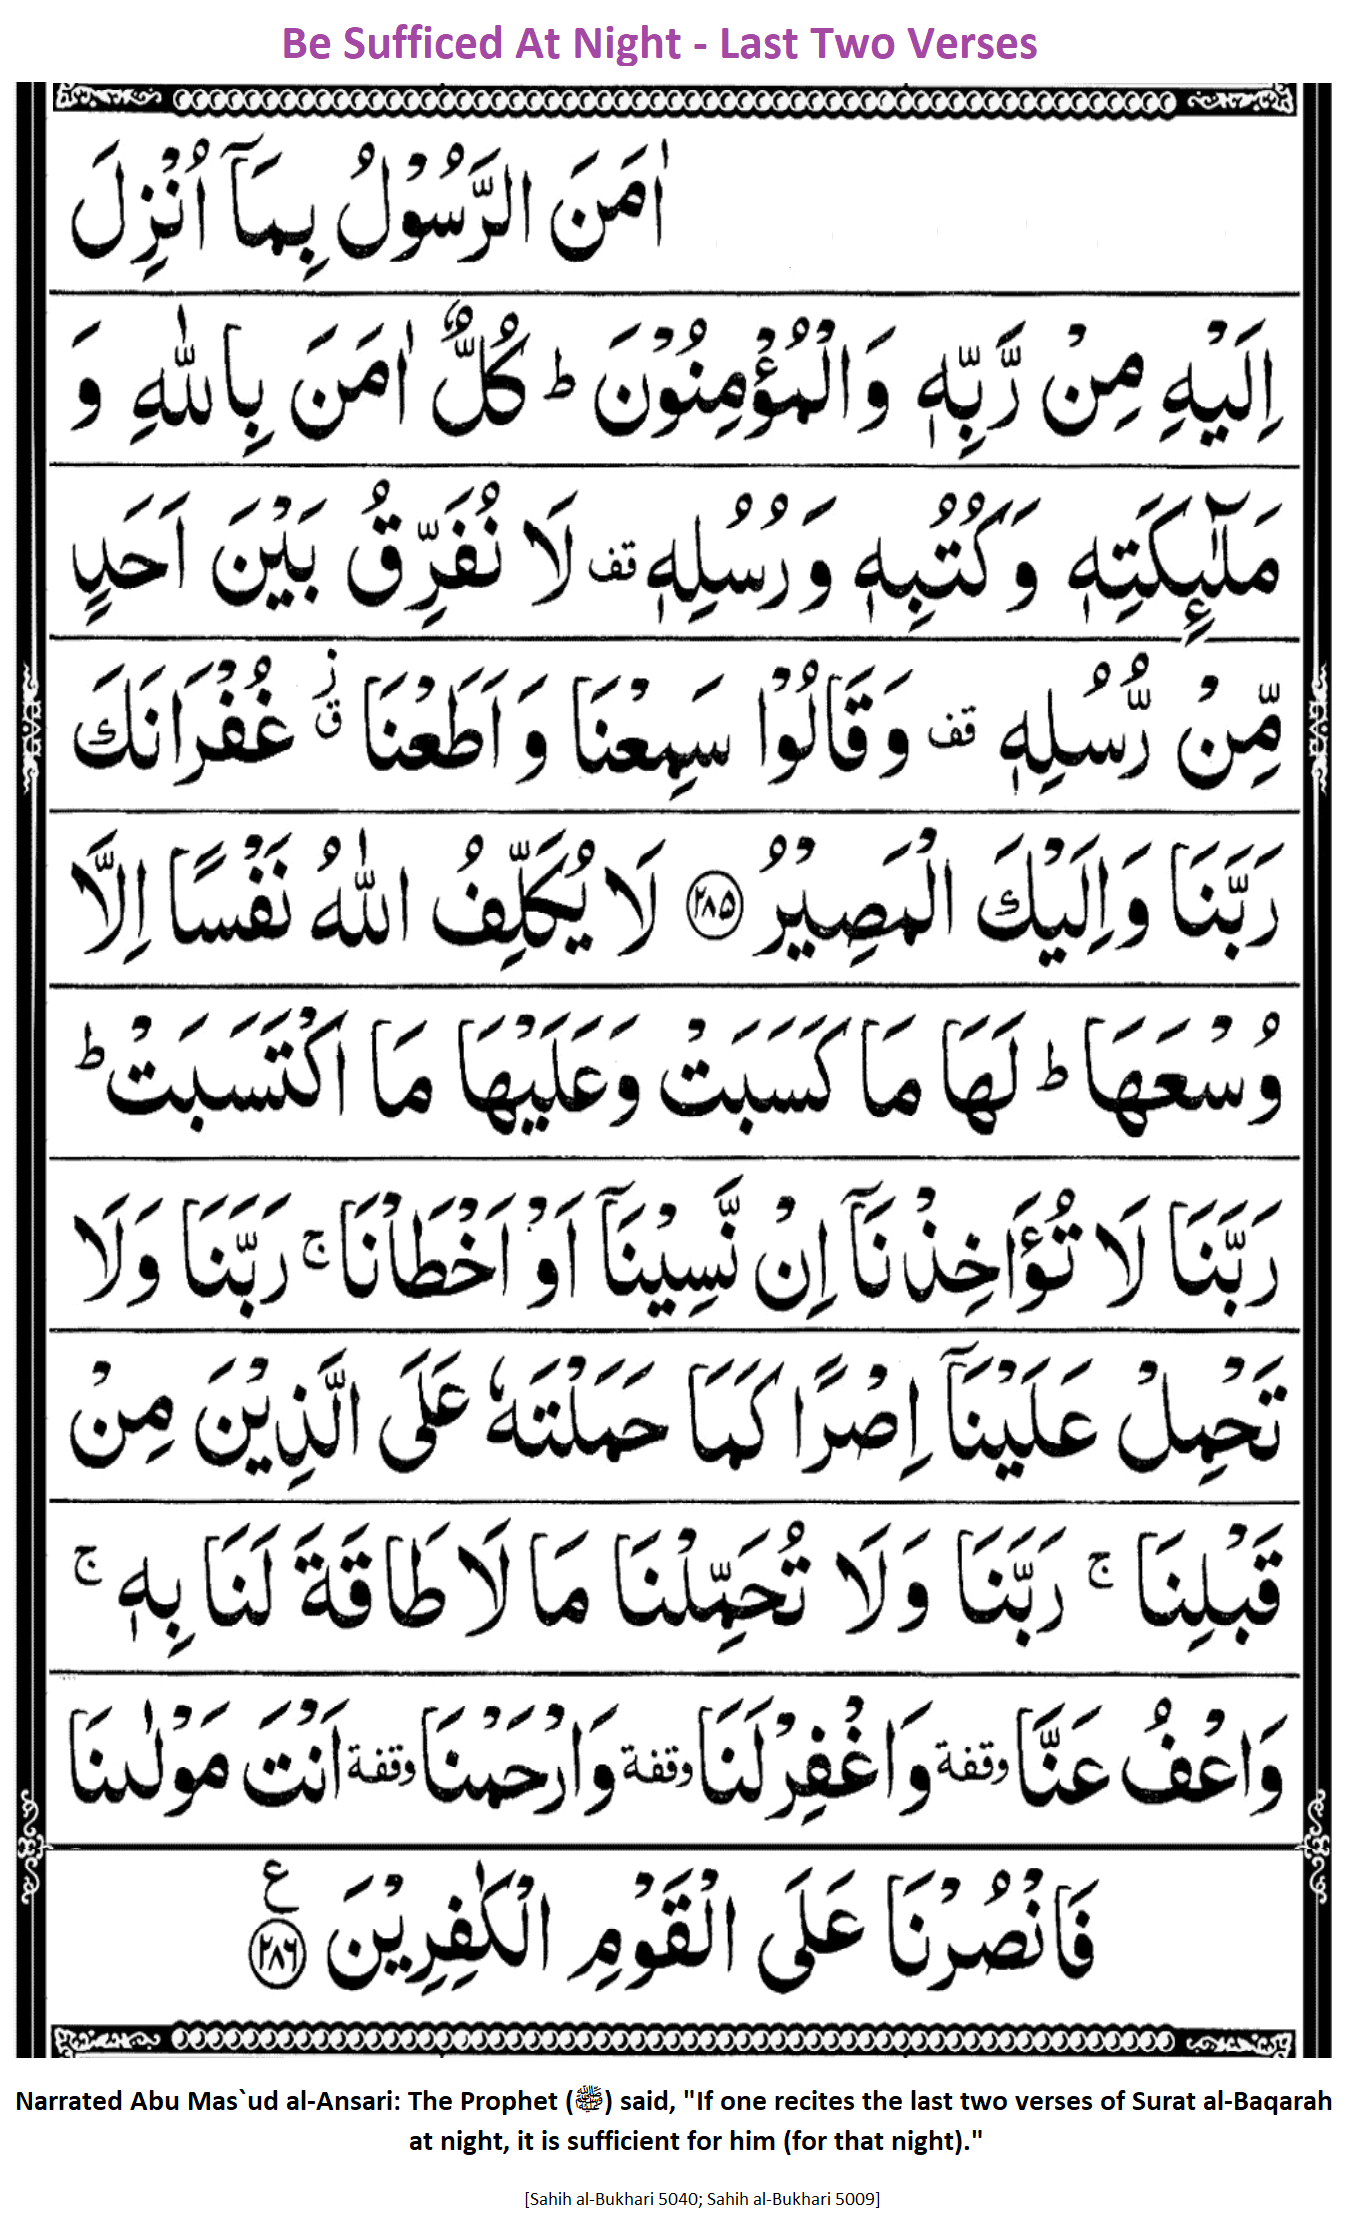 Be Sufficed At Night - Last Two Verses
اٰمَنَ الرَّسُوْلُ بِمَاۤ اُنْزِلَ
اِلَيْهِ مِنْ رَّبِّهٖ وَالْمُؤْمِنُوْنَ ؕ كُلٌّ اٰمَنَ بِاللّٰهِ وَ
مَلٰٓئِكَتِهٖ وَكُتُبِهٖ وَرُسُلِهٖ قف لَا نُفَرِّقُ بَيْنَ اَحَدٍ
مِّنْ رُّسُلِهٖ قف وَقَالُوْا سَمِعْنَا وَاَطَعْنَا ز ق غُفْرَانَكَ
رَبَّنَا وَاِلَيْكَ الْمَصِيْرُ ﴿۲۸۵﴾ لَا يُكَلِّفُ اللّٰهُ نَفْسًا اِلَّا
وُسْعَهَا ؕ لَهَا مَا كَسَبَتْ وَعَلَيْهَا مَا اكْتَسَبَتْ ؕ
رَبَّنَا لَا تُؤَاخِذْنَاۤ اِنْ نَّسِيْنَاۤ اَوْ اَخْطَاْنَا ۚ رَبَّنَا وَلَا
تَحْمِلْ عَلَيْنَاۤ اِصْرًا كَمَا حَمَلْتَهٗ عَلَى الَّذِيْنَ مِنْ
قَبْلِنَا ۚ رَبَّنَا وَلَا تُحَمِّلْنَا مَا لَا طَاقَةَ لَنَا بِهٖ ۚ
وَاعْفُ عَنَّا وقفة وَاغْفِرْ لَنَا وقفة وَارْحَمْنَا وقفة اَنْتَ مَوْلٰىنَا
فَانْصُرْنَا عَلَى الْقَوْمِ الْكٰفِرِيْنَ ﴿۲۸۶﴾ ع
Narrated Abu Mas`ud al-Ansari: The Prophet (ﷺ) said, "If one recites the last two verses of Surat al-Baqarah
at night, it is sufficient for him (for that night)."
[Sahih al-Bukhari 5040; Sahih al-Bukhari 5009]